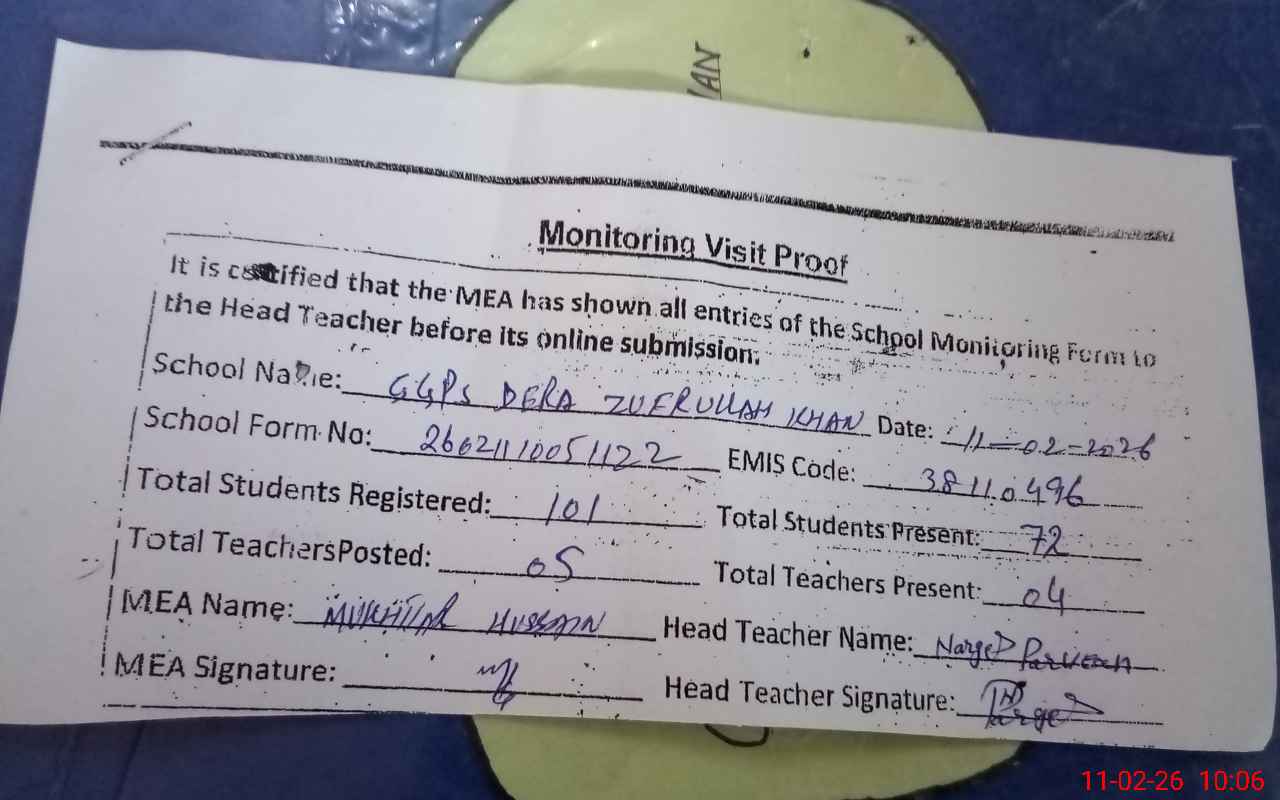 IAN
Monitoring Visit Proof
It is certified that the MEA has shown all entries of the School Monitoring Form to
the Head Teacher before its online submission.
School Name: GGPS DERA ZUFRULLAH KHAN Date: 11-02-2026
School Form No: 26021110051122 EMIS Code: 38110496
Total Students Registered: 101 Total Students Present: 72
Total Teachers Posted: 05 Total Teachers Present: 04
MEA Name: MUKHTIAR HUSSAIN Head Teacher Name: Narges Parveen
MEA Signature: Head Teacher Signature:
11-02-26 10:06